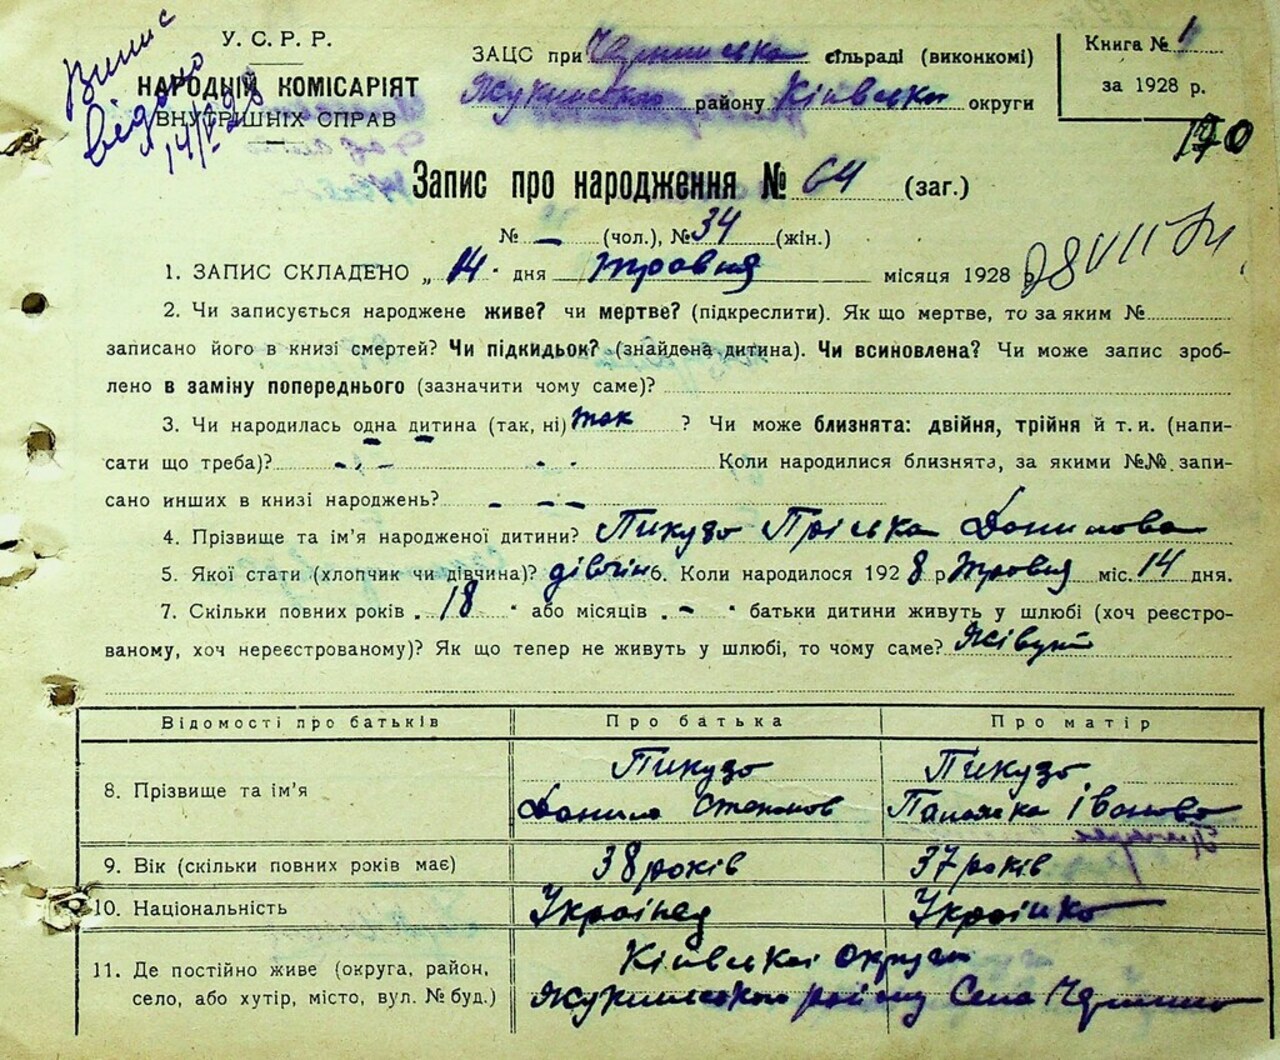 Випис
відано
14/V 28
У. С. Р. Р.
НАРОДНІЙ КОМІСАРІЯТ
ВНУТРІШНІХ СПРАВ
ЗАЦС при сільраді (виконкомі)
Жукинського району Київської округи
Книга № 1
за 1928 р.
Запис про народження № 64 (заг.)
№ — (чол.), № 34 (жін.)
1. ЗАПИС СКЛАДЕНО „ 14 " дня травня місяця 1928 р.
2. Чи записується народжене живе? чи мертве? (підкреслити). Як що мертве, то за яким №
записано його в книзі смертей? Чи підкидьок? (знайдена дитина). Чи всиновлена? Чи може запис зроб-
лено в заміну попереднього (зазначити чому саме)?
3. Чи народилась одна дитина (так, ні) так ? Чи може близнята: двійня, трійня й т. и. (напи-
сати що треба)? Коли народилися близнята, за якими №№ запи-
сано инших в книзі народжень?
4. Прізвище та ім'я народженої дитини? Пикузо Пріська Данилова
5. Якої стати (хлопчик чи дівчина)? дівчін 6. Коли народилося 1928 р. травня міс. 14 дня.
7. Скільки повних років „ 18 " або місяців „ - " батьки дитини живуть у шлюбі (хоч реєстро-
ваному, хоч нереєстрованому)? Як що тепер не живуть у шлюбі, то чому саме? Живуть
Відомості про батьків Про батька Про матір
8. Прізвище та ім'я Пикузо Данило Степанов Пикузо Палажка Іванова
9. Вік (скільки повних років має) 38 років 37 років
10. Національність Українец Українко
11. Де постійно живе (округа, район, Київської округи
село, або хутір, місто, вул. № буд.) Жукинського району Села